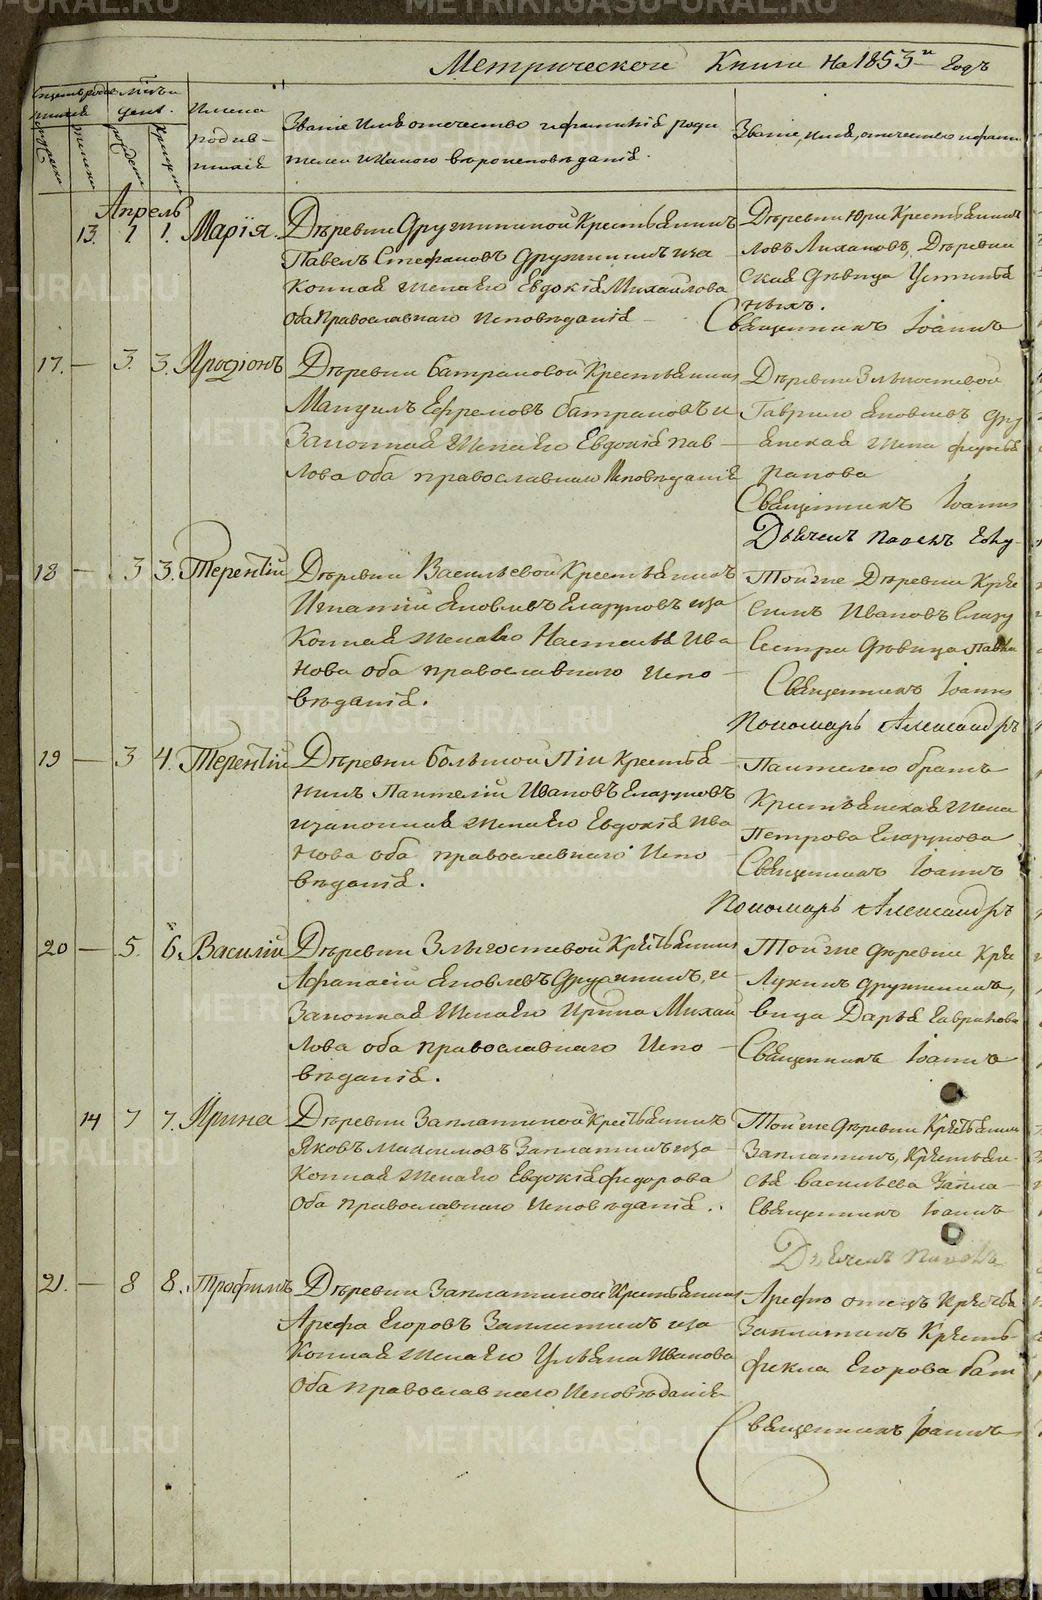 Метрической Книги на 1853й Годъ
Имена
родив-
шихся
Званіе Имя отечество и фамилія роди
телей и какого вероисповѣданія.
Званіе, имя, отечество и фами
Апрель
13. 1 1. Марія. Дѣревни Дружининой Крестьянинъ
Павелъ Стефановъ Дружининъ и за
конная жена его Евдокія Михайлова
оба Православнаго Исповѣданія
Дѣревни Юри Крестьянинъ
ловъ Лихановъ, Дѣревни
ская дѣвица Устинья
ныхъ.
Священникъ Іоаннъ
17. — 3. 3. Иродіонъ Дѣревни Батраковой Крестьянинъ
Мануилъ Ефремовъ Батраковъ и
Законная Жена его Евдокія Пав
лова оба православнаго Исповѣданія
Дѣревни Злыгостевой
Гаврило Яковлевъ Дру
янская жена
Священникъ Іоаннъ
Дьячекъ Павелъ
18 — 3 3. Терентій Дѣревни Васильевой Крестьянинъ
Игнатій Яковлевъ Елагуновъ и за
Конная жена его Настасья Ива
нова оба православнаго Испо
вѣданія.
Той же Дѣревни Кре
Ивановъ Елагу
Сестра дѣвица
Священникъ Іоаннъ
Пономарь Александръ
19 — 3 4. Терентій Дѣревни Большой Піи Крестья
нинъ Пантелій Ивановъ Елагуновъ
и законная жена его Евдокія Ива
нова оба православнаго Испо
вѣданія.
Пантелею братъ
Крестьянская жена
Петрова Елагунова
Священникъ Іоаннъ
Пономарь Александръ
20 — 5. 6. Василій Дѣревни Злыгостевой Крестьянинъ
Афанасій Яковлевъ Дружининъ, и
Законная Жена его Ирина Михай
лова оба православнаго Испо
вѣданія.
Той же деревни Кре
Лукинъ Дружининъ,
вица Дарья Гаврилова
Священникъ Іоаннъ
14 7 7. Ирина Дѣревни Заплатиной Крестьянинъ
Яковъ Максимовъ Заплатинъ и за
Конная жена его Евдокія Федорова
Оба Православнаго Исповѣданія.
Той же Дѣревни Крестьянинъ
Заплатинъ, Крестьян-
ска Васильева Запла-
Священникъ Іоаннъ
Дьячекъ Павелъ
21. — 8 8. Трофимъ Дѣревни Заплатиной Крестьянинъ
Арефа Егоровъ Заплатинъ и за
Конная жена его Ульяна Иванова
Оба православнаго Исповѣданія
Арефію отецъ Крестья
Заплатинъ Кресть-
Фекла Егорова Бат
Священникъ Іоаннъ
METRIKI.GASO-URAL.RU